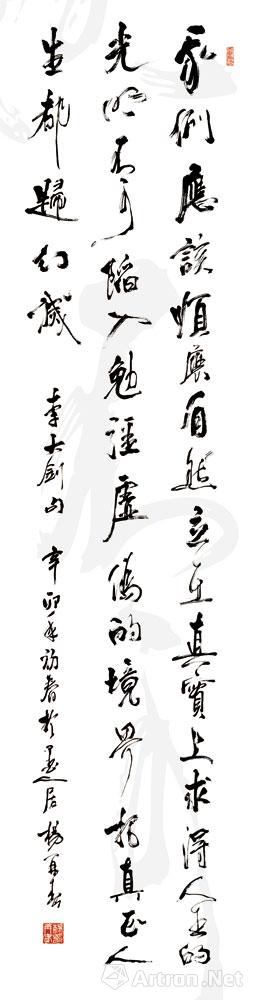 我们應該順應自然立在真實上求得人生的
光明不可陷入勉强虛偽的境界把真正人
生都歸幻滅
李大釗句 辛卯年初春於墨居楊
雅昌艺术网
Artron.Net